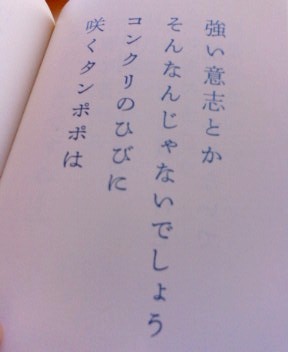 強い意志とか
そんなんじゃないでしょう
コンクリのひびに
咲くタンポポは